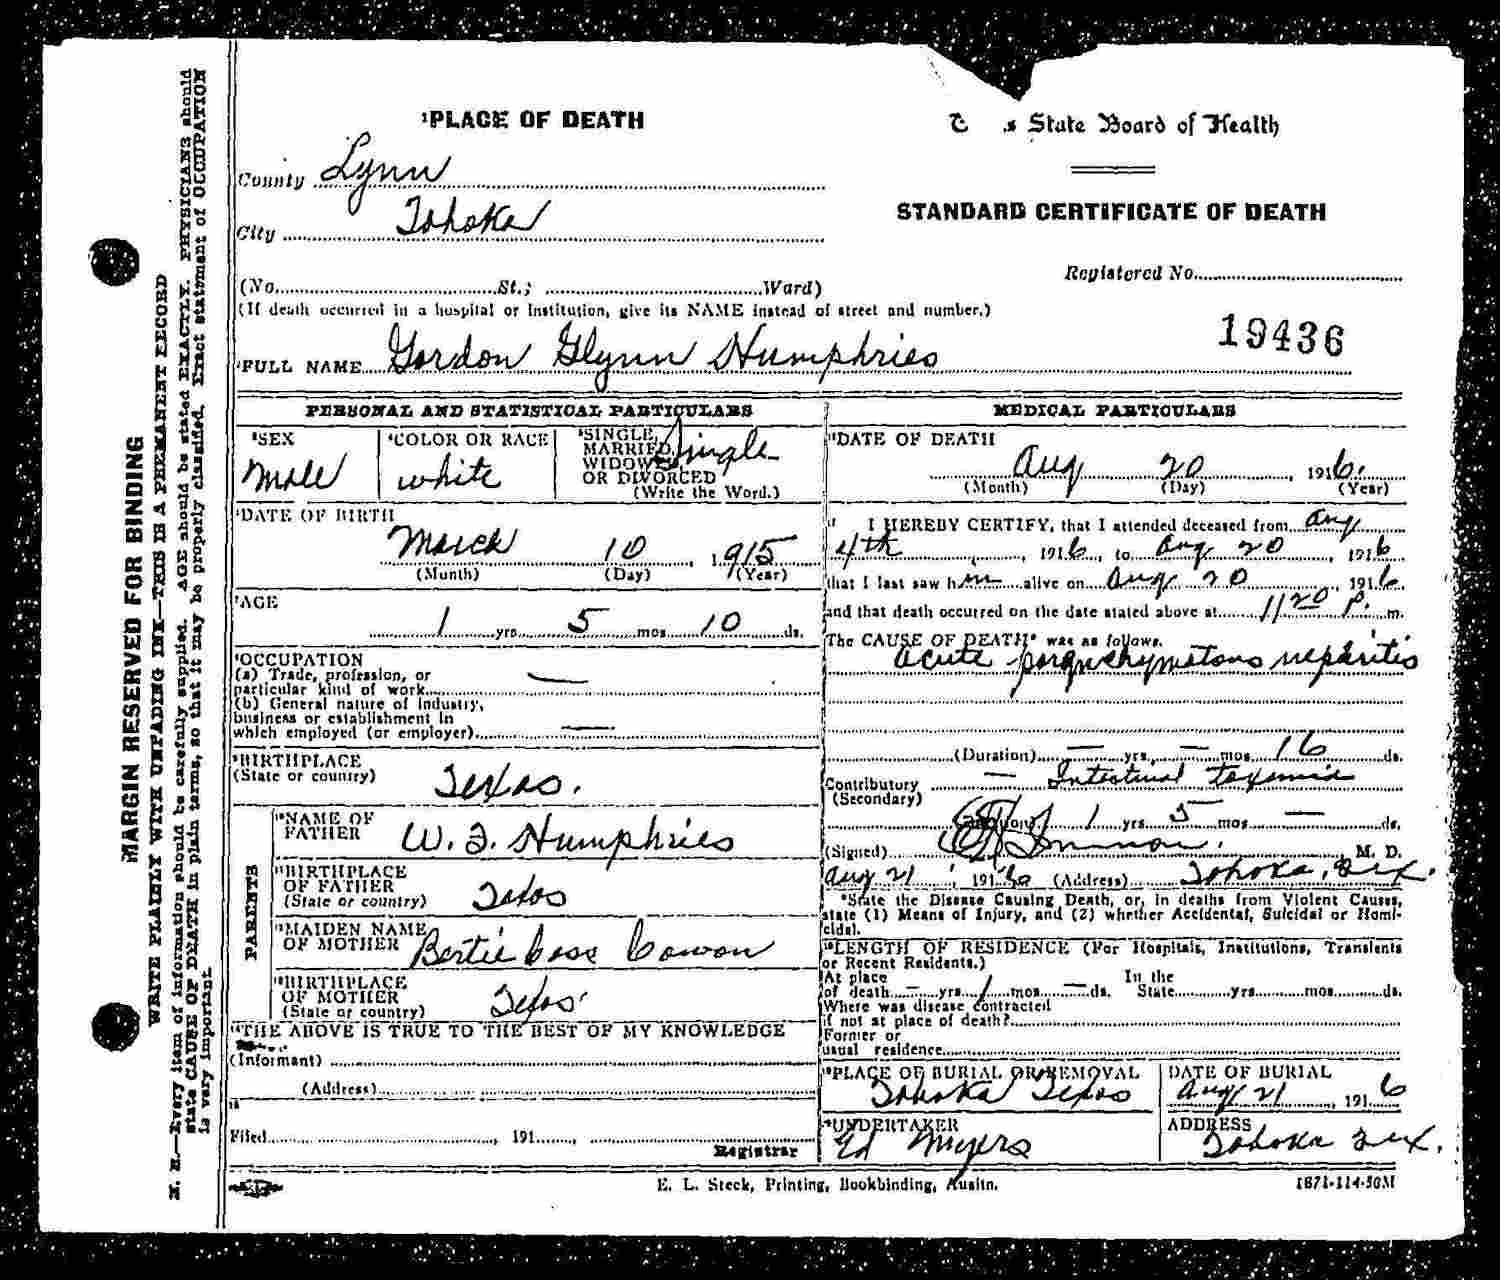 ¹PLACE OF DEATH
County Lynn
City Tahoka
(No. St.; Ward)
(If death occurred in a hospital or institution, give its NAME instead of street and number.)
State Board of Health
STANDARD CERTIFICATE OF DEATH
Registered No.
19436
²FULL NAME Gordon Glynn Humphries
PERSONAL AND STATISTICAL PARTICULARS
³SEX
Male
⁴COLOR OR RACE
white
⁵SINGLE,
MARRIED,
WIDOWED,
OR DIVORCED
(Write the Word.)
Single
⁶DATE OF BIRTH
March 10 1915
(Month) (Day) (Year)
⁷AGE
1 yrs. 5 mos. 10 ds.
⁸OCCUPATION
(a) Trade, profession, or
particular kind of work
(b) General nature of industry,
business or establishment in
which employed (or employer)
⁹BIRTHPLACE
(State or country)
Texas.
PARENTS
¹⁰NAME OF
FATHER
W. F. Humphries
¹¹BIRTHPLACE
OF FATHER
(State or country)
Texas
¹²MAIDEN NAME
OF MOTHER
Bertie Cass Cowan
¹³BIRTHPLACE
OF MOTHER
(State or country)
Texas
¹⁴THE ABOVE IS TRUE TO THE BEST OF MY KNOWLEDGE
(Informant)
(Address)
15
Filed , 191 ,
Registrar
MEDICAL PARTICULARS
¹⁶DATE OF DEATH
Aug 20, 1916.
(Month) (Day) (Year)
17 I HEREBY CERTIFY, that I attended deceased from Aug
4th , 1916, to Aug 20, 1916
that I last saw him alive on Aug 20 1916.
and that death occurred on the date stated above at 11 20 P. m.
The CAUSE OF DEATH* was as follows.
Acute parenchymatous nephritis
(Duration) — yrs. — mos. 16 ds.
Contributory — Intestinal toxemia
(Secondary)
(Duration) 1 yrs. 5 mos — ds.
(Signed) M. D.
Aug 21, 1916 (Address) Tahoka, Tex.
*State the Disease Causing Death, or, in deaths from Violent Causes,
state (1) Means of Injury, and (2) whether Accidental, Suicidal or Homi-
cidal.
¹⁸LENGTH OF RESIDENCE (For Hospitals, Institutions, Transients
or Recent Residents.)
At place In the
of death — yrs. 1 mos. — ds. State yrs. mos. ds.
Where was disease contracted
if not at place of death?
Former or
usual residence
¹⁹PLACE OF BURIAL OR REMOVAL
Tahoka Texas
DATE OF BURIAL
Aug 21 1916
²⁰UNDERTAKER
Ed Myers
ADDRESS
Tahoka Tex.
E. L. Steck, Printing, Bookbinding, Austin.
1871-114-50M
MARGIN RESERVED FOR BINDING
WRITE PLAINLY WITH UNFADING INK—THIS IS A PERMANENT RECORD
N. B.—Every item of information should be carefully supplied. AGE should be stated EXACTLY. PHYSICIANS should
state CAUSE OF DEATH in plain terms, so that it may be properly classified. Exact statement of OCCUPATION
is very important.